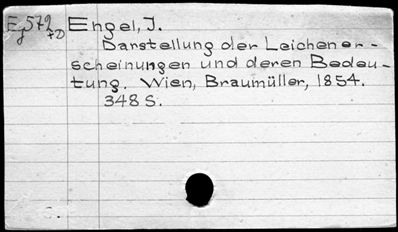 Eg 572 FD Engel, J.
Darstellung der Leichener-
scheinungen und deren Bedeu-
tung. Wien, Braumüller, 1854.
348 S.